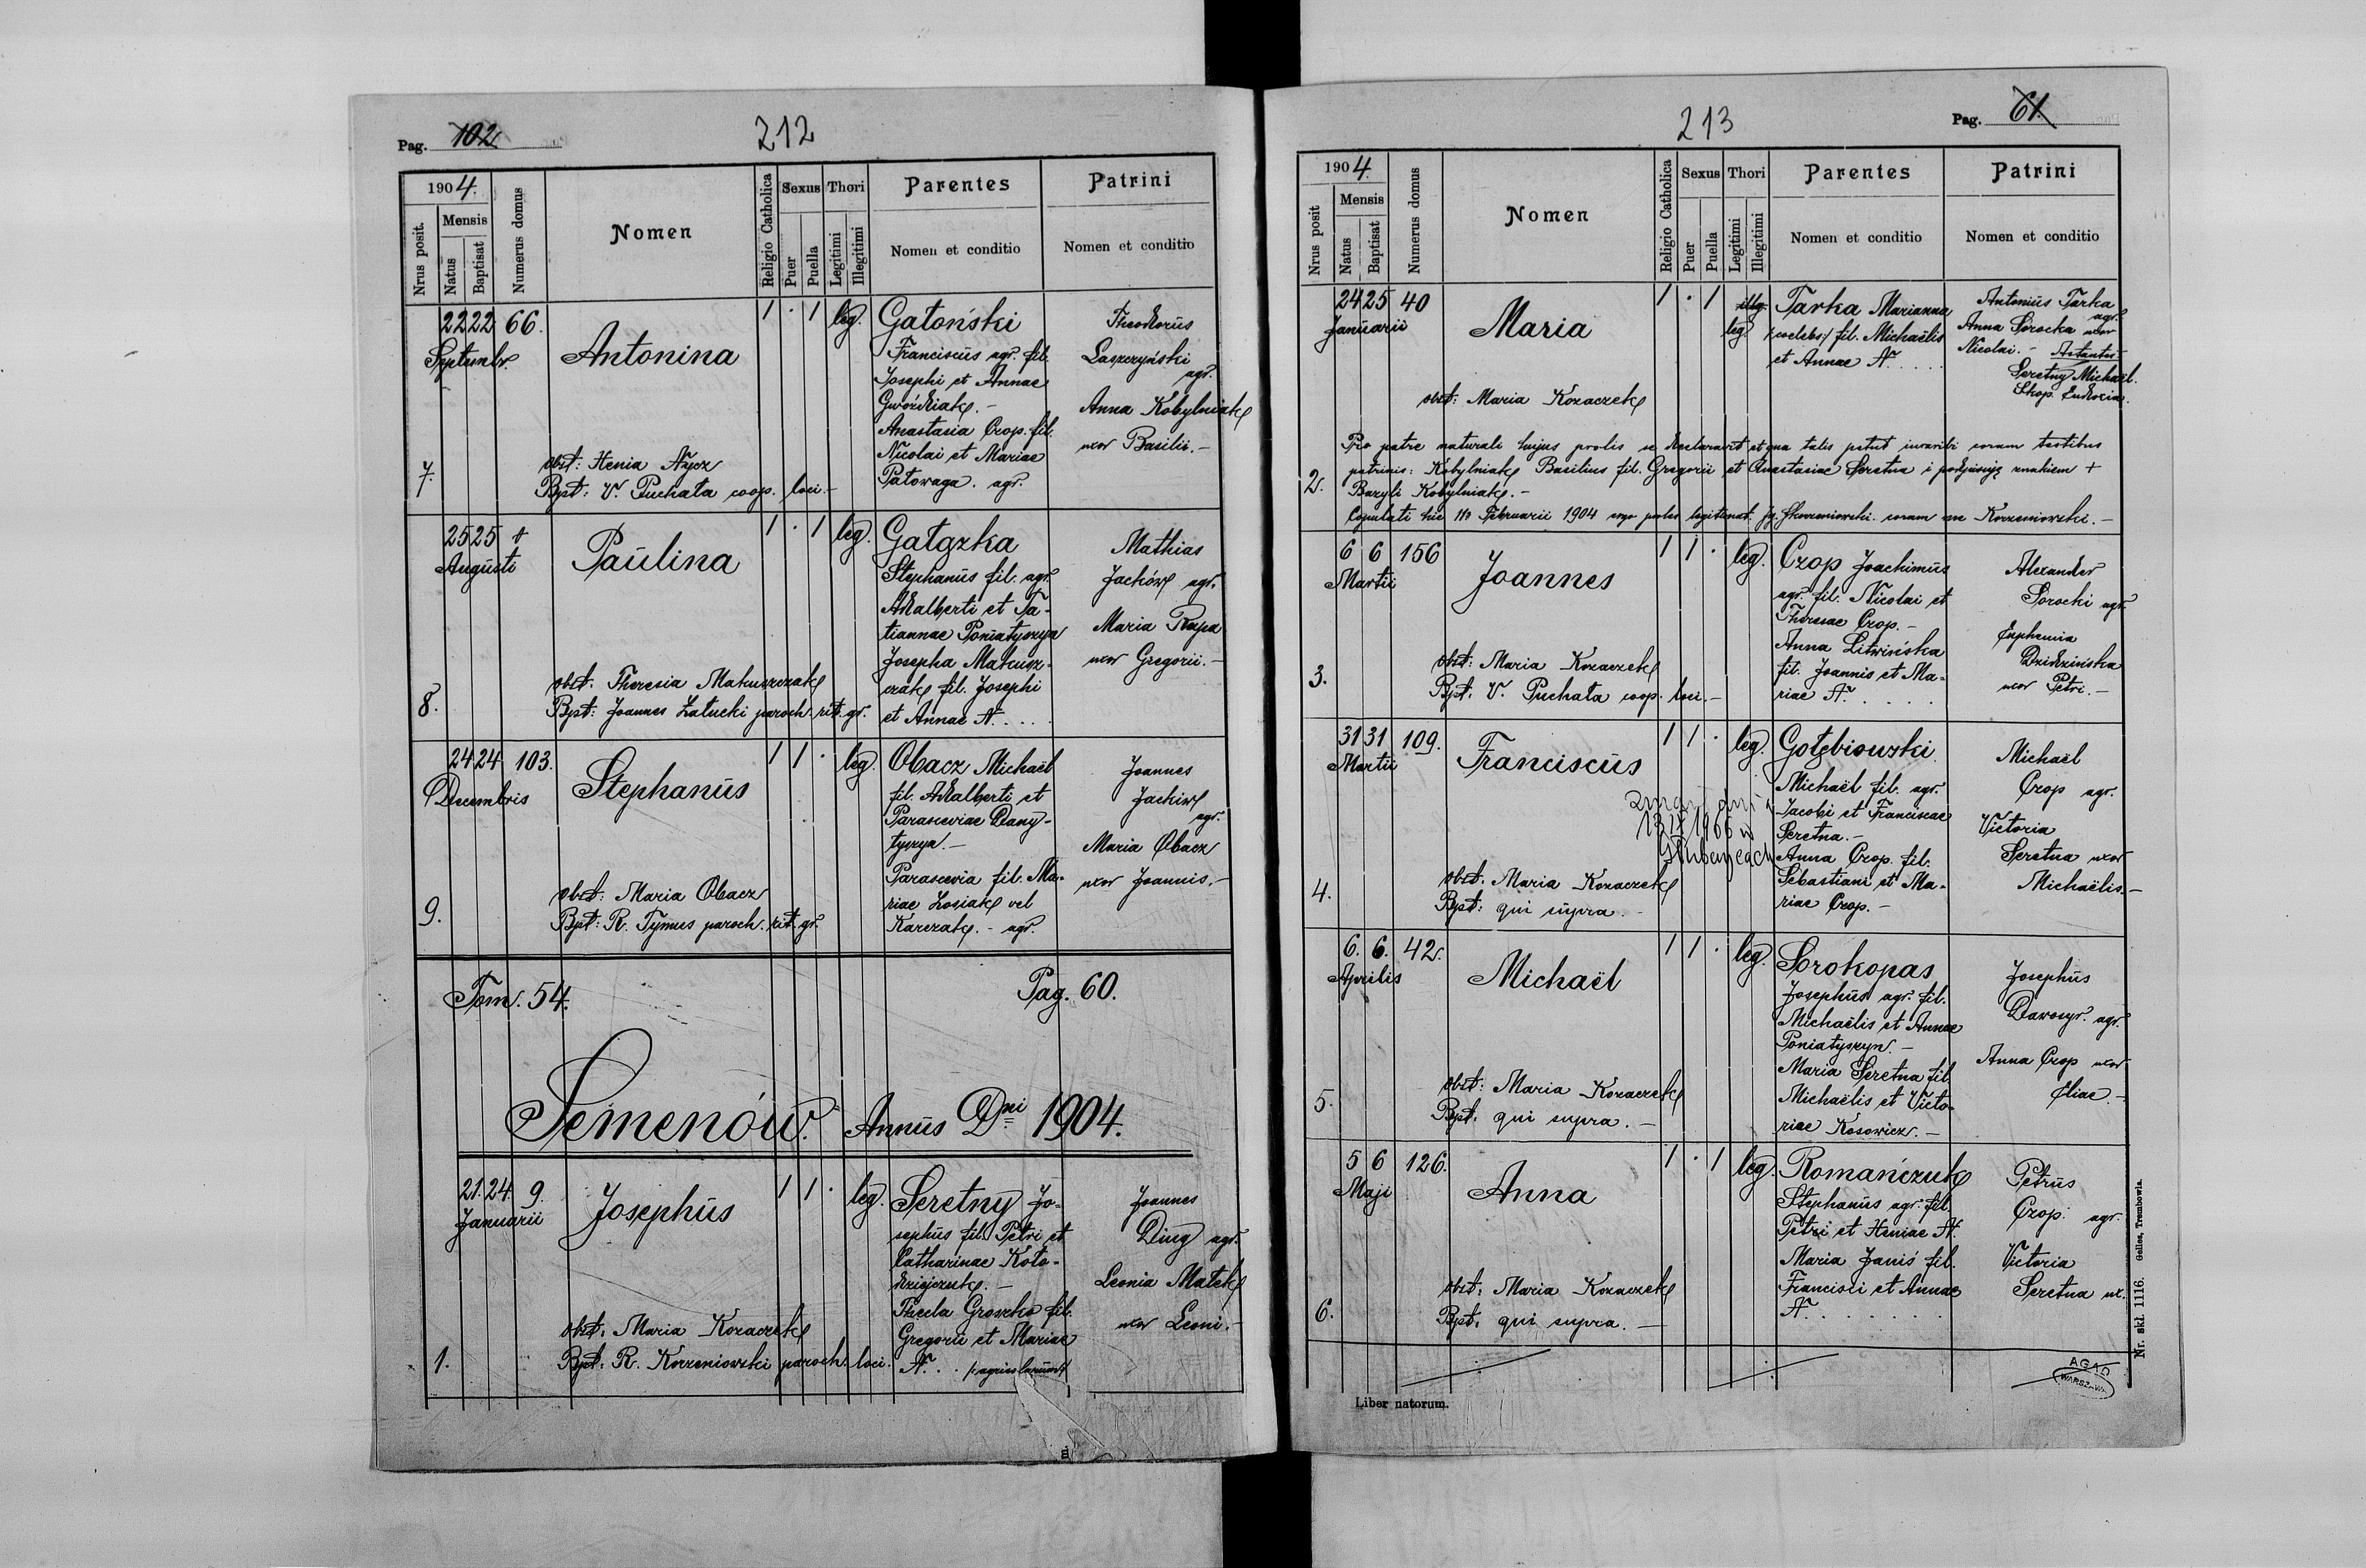 Pag. 102
212
1904.
Nrus posit.
Mensis
Natus
Baptisat
Numerus domus
Nomen
Religio Catholica
Sexus
Puer
Puella
Thori
Legitimi
Illegitimi
Parentes
Nomen et conditio
Patrini
Nomen et conditio
7.
22 22 66.
Septembr.
Antonina
1 . 1 leg.
obst: Henia
Bpt: V. Puchała coop. loci.-
Gatoński
Franciscus agr. fil.
Josephi et Annae
Gwoździak.-
Anastasia Czop. fil.
Nicolai et Mariae
Patowaga. agr.
Theodorus
Laszczyński
agr.
Anna Kobylniak
uxor Basilii.-
8.
25 25
Augusti
Paulina
1 . 1 leg.
obst. Theresia Matuszczak
Bpt: Joannes Załucki paroch. rit. gr.
Gałązka
Stephanus fil. agr.
Adalberti et Ta-
tiannae Poniatyszyn
Josepha Matusz-
czak fil. Josephi
et Annae N. . . .
Mathias
Jacków agr.
Maria Rzepa
uxor Gregorii.-
9.
24 24 103.
Decembris
Stephanus
1 1 . leg.
obst: Maria Obacz
Bpt: R. Tymus paroch. rit. gr.
Obacz Michaël
fil. Adalberti et
Parasceviae Dany-
tyszyn.-
Parascevia fil. Ma-
riae Łosiak vel
Karczak.- agr.
Joannes
Jackiw
agr.
Maria Obacz
uxor Joannis.-
Tom. 54.
Pag. 60.
Semenów. Annus Dni 1904.
1.
21. 24. 9.
Januarii
Josephus
1 1 . leg.
obst. Maria Kozaczek
Bpt: R. Korzeniowski paroch. loci.
Seretny Jo-
sephus fil. Petri et
Catharinae Koło-
dziejczuk.-
Thecla Groszko fil.
Gregorii et Mariae
N. . . /:agricolarum:/
Joannes
Ding agr.
Leonia Matek
uxor Leoni.-
213
Pag. 61.
1904.
Nrus posit
Mensis
Natus
Baptisat
Numerus domus
Nomen
Religio Catholica
Sexus
Puer
Puella
Thori
Legitimi
Illegitimi
Parentes
Nomen et conditio
Patrini
Nomen et conditio
2.
24 25 40
Januarii
Maria
1 . 1 illg.
leg.
obst: Maria Kozaczek
Tarka Marianna
/:coelebs:/ fil. Michaëlis
et Annae N. . . . .
Antonius Tarka
agr.
Anna Sorocka uxor
Nicolai.- Astantes:
Seretny Michaël.
Skop.
Pro patre naturali hujus prolis se declaravit et qua talis petit inscribi coram testibus
patrinis: Kobylniak Basilius fil. Gregorii et Anastasiae Seretna i podpisuję znakiem +
Bazyli Kobylniak.-
Copulati hic 11/ Februarii 1904 ergo proles legitimat. Jg. Skorzeniowski. coram me Korzeniowski.-
3.
6 6 156
Martii
Joannes
1 1 . leg.
obst: Maria Kozaczek
Bpt. V. Puchała coop. loci.-
Czop Joachimus
agr. fil. Nicolai et
Theresae Czop.-
Anna Litwińska
fil. Joannis et Ma-
riae N. . . . .
Alexander
Sorocki agr.
Euphemia
Dzidzińska
uxor Petri.-
4.
31 31 109.
Martii
Franciscus
1 1 . leg.
1966 w
obst. Maria Kozaczek
Bpt: qui supra.-
Gołębiowski
Michaël fil. agr.
Jacobi et Franciscae
Seretna.-
Anna Czop. fil.
Sebastiani et Ma-
riae Czop.-
Michaël
Czop agr.
Victoria
Seretna uxor
Michaëlis.-
5.
6. 6. 42.
Aprilis
Michaël
1 1 . leg.
obst: Maria Kozaczek
Bpt. qui supra.-
Sorokopas
Josephus agr. fil.
Michaëlis et Annae
Poniatyszyn.-
Maria Seretna fil.
Michaëlis et Victo-
riae Kosowicz.-
Josephus
Darosyr. agr.
Anna Czop uxor
Eliae.-
6.
5 6 126.
Maji
Anna
1 . 1 leg.
obst: Maria Kozaczek
Bpt. qui supra.-
Romańczuk
Stephanus agr. fil.
Petri et Heniae N.
Maria Janiś fil.
Francisci et Annae
N. . . . . . .
Petrus
Czop. agr.
Victoria
Seretna ux.
Liber natorum.
Nr. skł. 1116. Galles, Trembowla.
AGAD
WARSZAWA